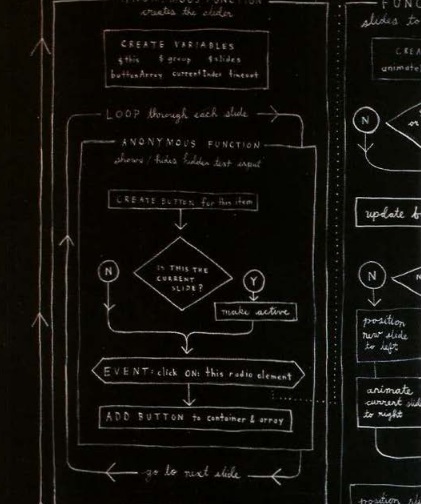 ANONYMOUS FUNCTION
creates the slider
CREATE VARIABLES
$this $group $slides
buttonArray currentIndex timeout
LOOP through each slide
ANONYMOUS FUNCTION
shows / hides hidden text input
CREATE BUTTON for this item
IS THIS THE
CURRENT
SLIDE?
N
Y
make active
EVENT: click ON: this radio element
ADD BUTTON to container & array
go to next slide
slides to
N
or
update b
N
position
new slide
to left
animate
current slid
to right